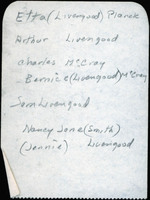 Etta (Livengood) Planck
Arthur Livengood
Charles McCray
Bernice (Livengood) McCray
Jean Livengood
Nancy Jane (Smith)
(Jennie) Livengood